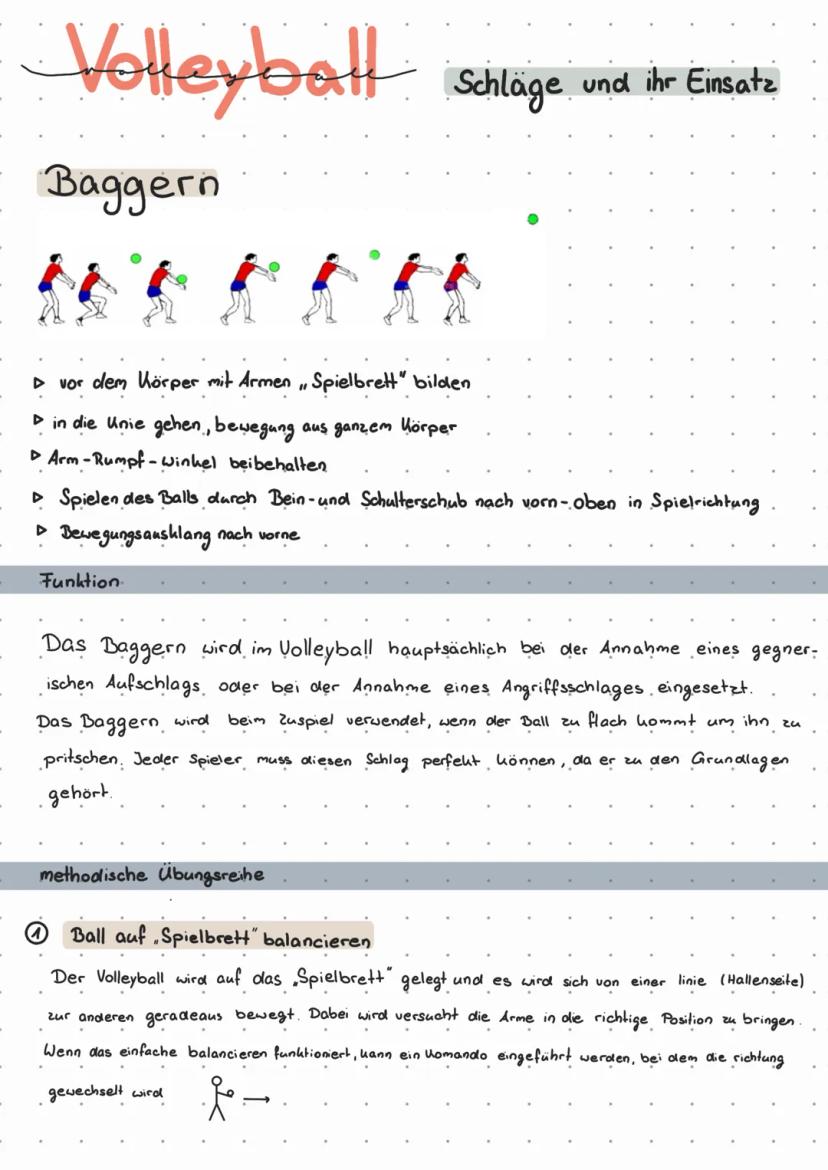 Volleyball
volleyball
Schläge und ihr Einsatz
Baggern
▷ vor dem Körper mit Armen „Spielbrett" bilden
▷ in die Knie gehen, bewegung aus ganzem Körper
▷ Arm-Rumpf-Winkel beibehalten
▷ Spielen des Balls durch Bein- und Schulterschub nach vorn-oben in Spielrichtung
▷ Bewegungsausklang nach vorne
Funktion
Das Baggern wird im Volleyball hauptsächlich bei der Annahme eines gegner-
ischen Aufschlags oder bei der Annahme eines Angriffsschlages eingesetzt.
Das Baggern wird beim Zuspiel verwendet, wenn der Ball zu flach kommt um ihn zu
pritschen. Jeder Spieler muss diesen Schlag perfekt können, da er zu den Grundlagen
gehört.
methodische Übungsreihe
① Ball auf „Spielbrett" balancieren
Der Volleyball wird auf das „Spielbrett" gelegt und es wird sich von einer linie (Hallenseite)
zur anderen geradeaus bewegt. Dabei wird versucht die Arme in die richtige Position zu bringen.
Wenn das einfache balancieren funktioniert, kann ein Komando eingeführt werden, bei dem die richtung
gewechselt wird